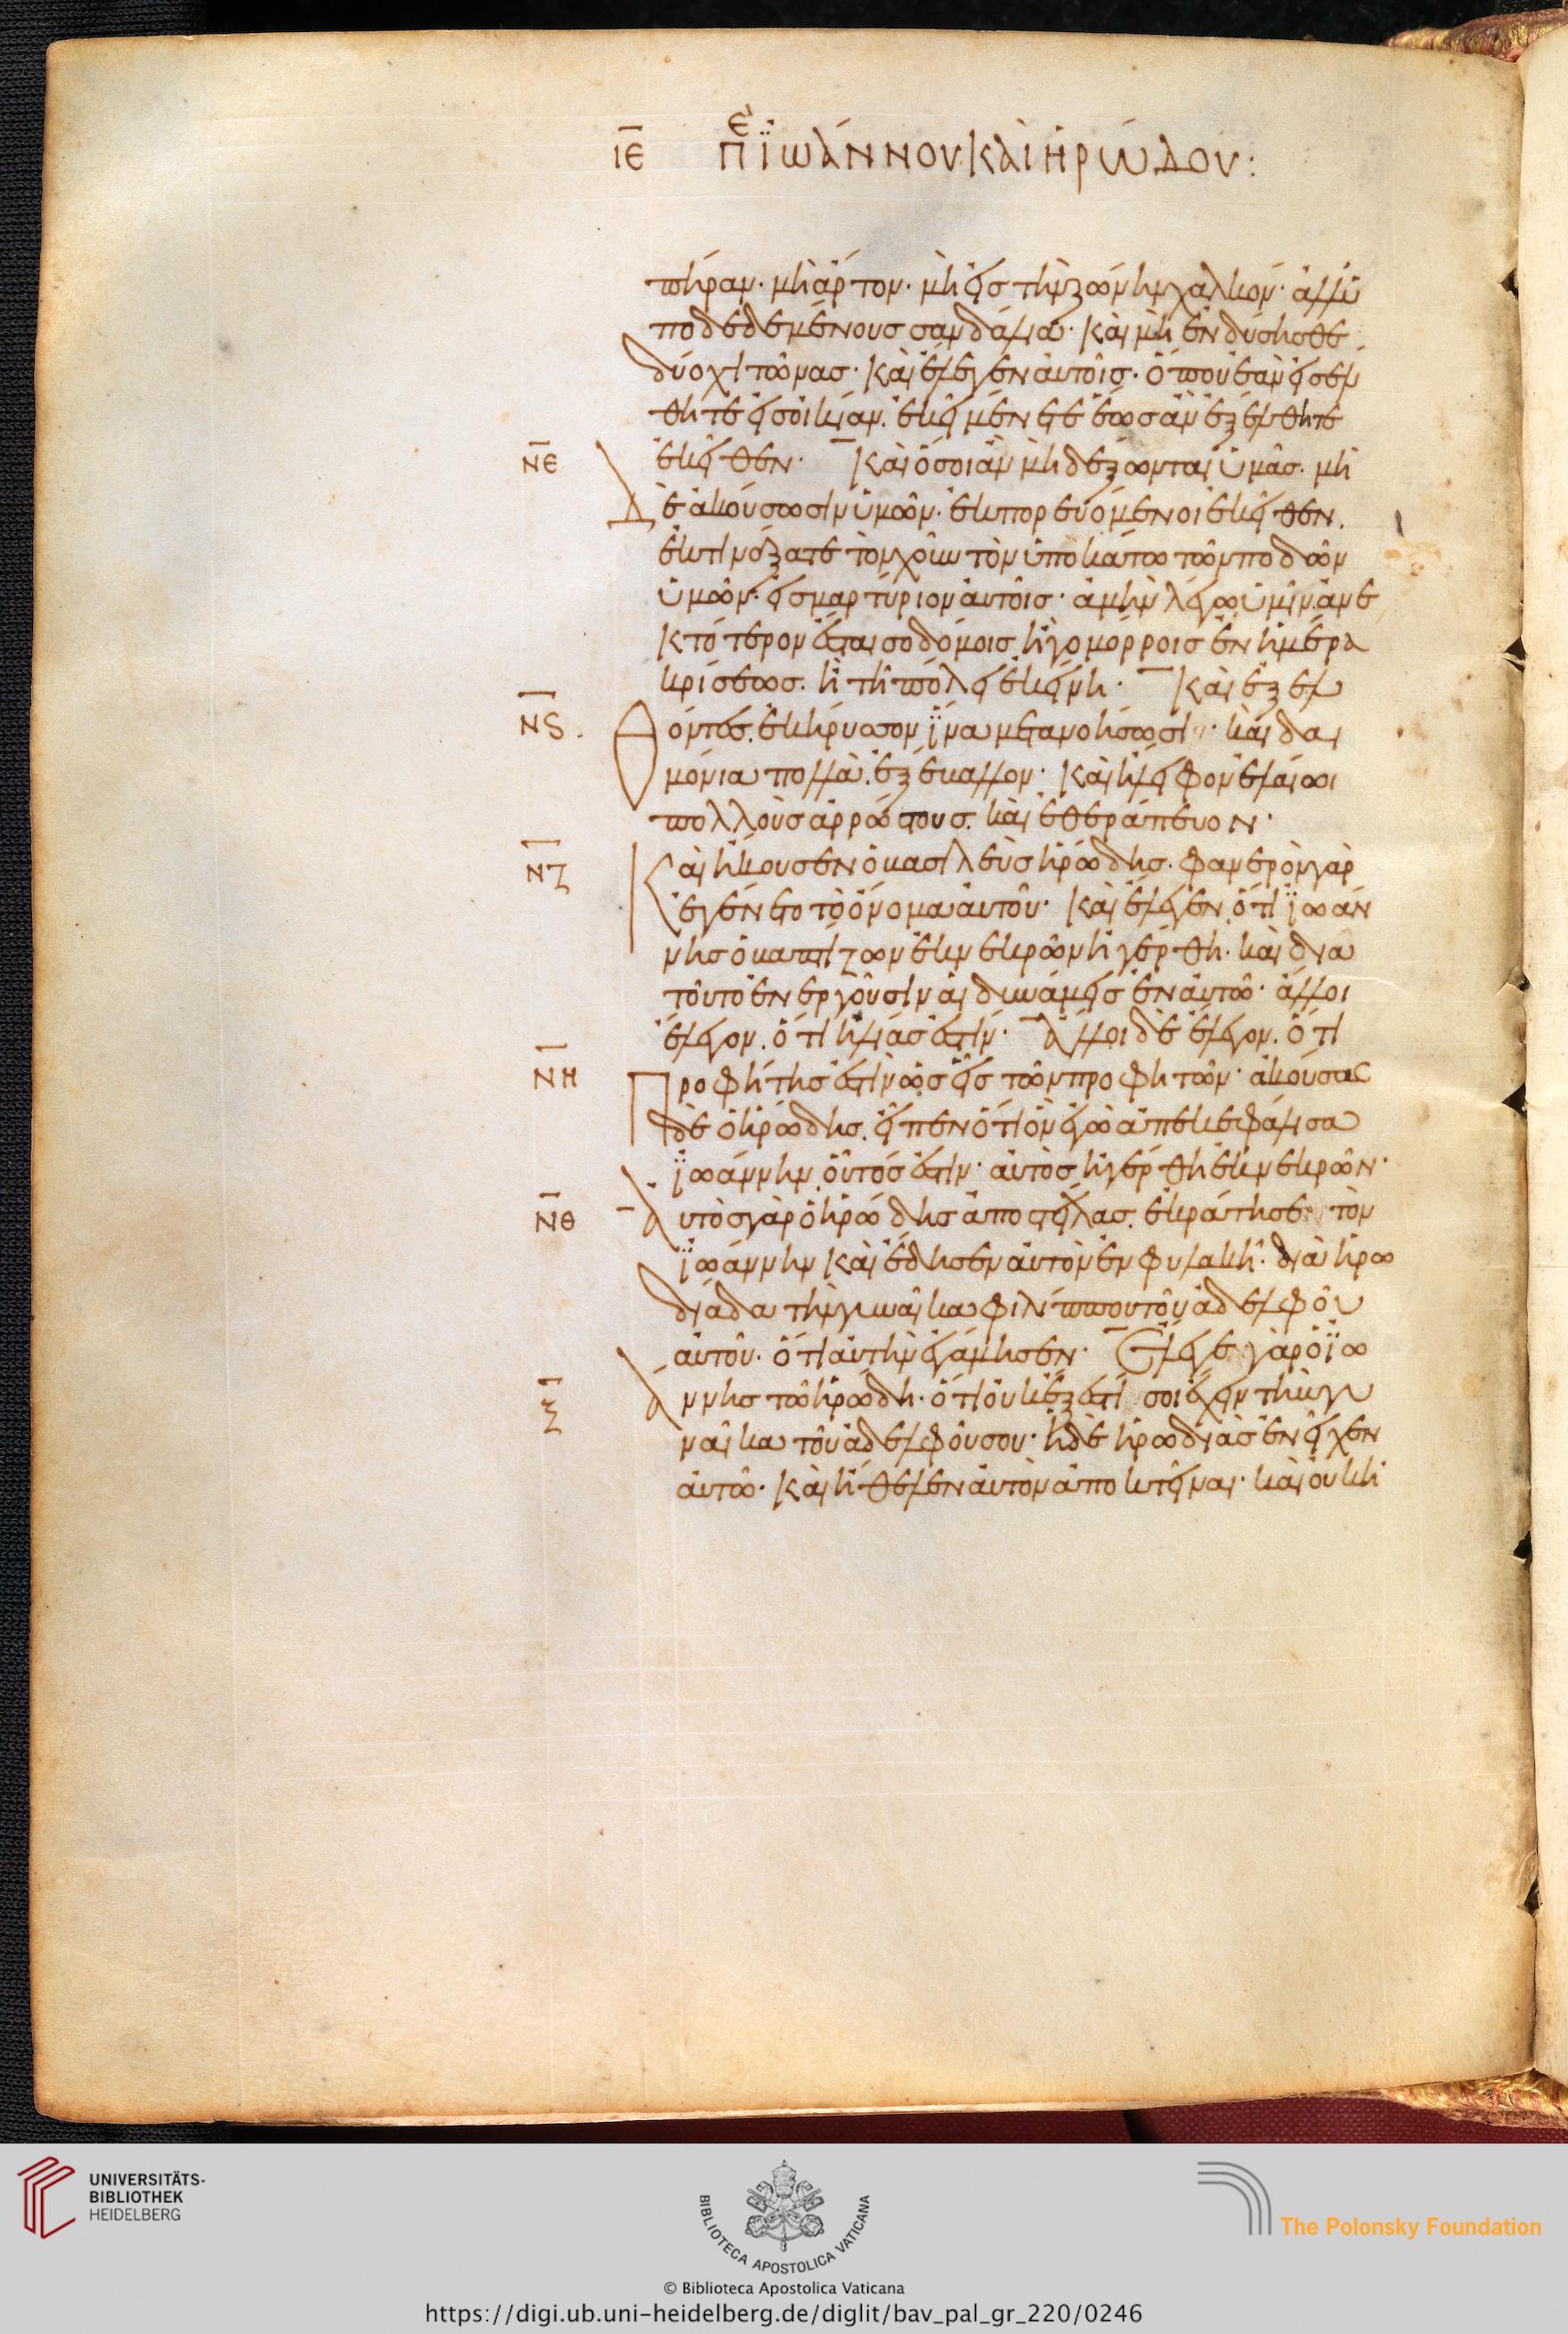 ιε Πε ϊωάννου και ηρώδου:
πήραν· μὴ ἄρτον· μὴ εἰς τὴν ζώνην χαλκόν· ἀλλ' ὑ
ποδεδεμένους σανδάλια· καὶ μὴ ἐνδύσησθε
δύο χιτῶνας· καὶ ἔλεγεν αὐτοῖς· ὅπου ἐὰν εἰσέλ
θητε εἰς οἰκίαν. ἐκεῖ μένετε ἕως ἂν ἐξέλθητε
νε ἐκεῖθεν· Καὶ ὅσοι ἂν μὴ δέξωνται ὑμᾶς. μὴ
Δὲ ἀκούσωσιν ὑμῶν· ἐκπορευόμενοι ἐκεῖθεν.
ἐκτινάξατε τὸν χοῦν τὸν ὑποκάτω τῶν ποδῶν
ὑμῶν· εἰς μαρτύριον αὐτοῖς· ἀμὴν λέγω ὑμῖν. ἀνε
κτότερον ἔσται σοδόμοις ἢ γομόρροις ἐν ἡμέρα
κρίσεως. ἢ τῆ πόλει ἐκείνη· Καὶ ἐξελ
νς. Θόντες. ἐκήρυσσον ϊνα μετανοήσωσι· καὶ δαι
μόνια πολλὰ. ἐξέβαλλον· καὶ ἤλειφον ἐλαίωι
πολλοὺς ἀρρώστους. καὶ ἐθεράπευον·
νζ Καὶ ἤκουσεν ὁ βασιλεὺς ἡρώδης· φανερὸν γὰρ
ἐγένετο τὸ ὄνομα αὐτοῦ· καὶ ἔλεγεν. ὅτι ϊωάν
νης ὁ βαπτίζων ἐκ νεκρῶν ἠγέρθη· καὶ δια
τοῦτο ἐνεργοῦσιν αἱ δυνάμεις ἐν αὐτῶ· ἄλλοι
ἔλεγον. ὅτι ἠλίας ἐστίν· ἄλλοι δὲ ἔλεγον. ὅτι
νη Προφήτης ἐστὶν ὡς εἷς τῶν προφητῶν· ἀκούσας
δὲ ὁ ἡρώδης. εἶπεν ὅτι ὃν ἐγὼ ἀπεκεφάλισα
ϊωάννην. οὗτός ἐστιν· αὐτὸς ἠγέρθη ἐκ νεκρῶν·
νθ Αὐτὸς γὰρ ὁ ἡρώδης ἀποστείλας. ἐκράτησε τὸν
ϊωάννην καὶ ἔδησεν αὐτὸν ἐν φυλακῆ· διὰ ἡρω
διάδα τὴν γυναῖκα φιλίππου τοῦ ἀδελφοῦ
αὐτοῦ· ὅτι αὐτὴν ἐγάμησεν· Ἔλεγε γὰρ ὁ ϊω
ξ άννης τῶ ἡρώδη· ὅτι οὐκ ἔξεστί σοι ἔχειν τὴν γυ
ναῖκα τοῦ ἀδελφοῦ σου· ἡ δὲ ἡρωδιὰς ἐνεῖχεν
αὐτῶ· καὶ ἤθελεν αὐτὸν ἀποκτεῖναι· καὶ οὐκ ἠ
UNIVERSITÄTS-
BIBLIOTHEK
HEIDELBERG
BIBLIOTECA APOSTOLICA VATICANA
The Polonsky Foundation
© Biblioteca Apostolica Vaticana
https://digi.ub.uni-heidelberg.de/diglit/bav_pal_gr_220/0246